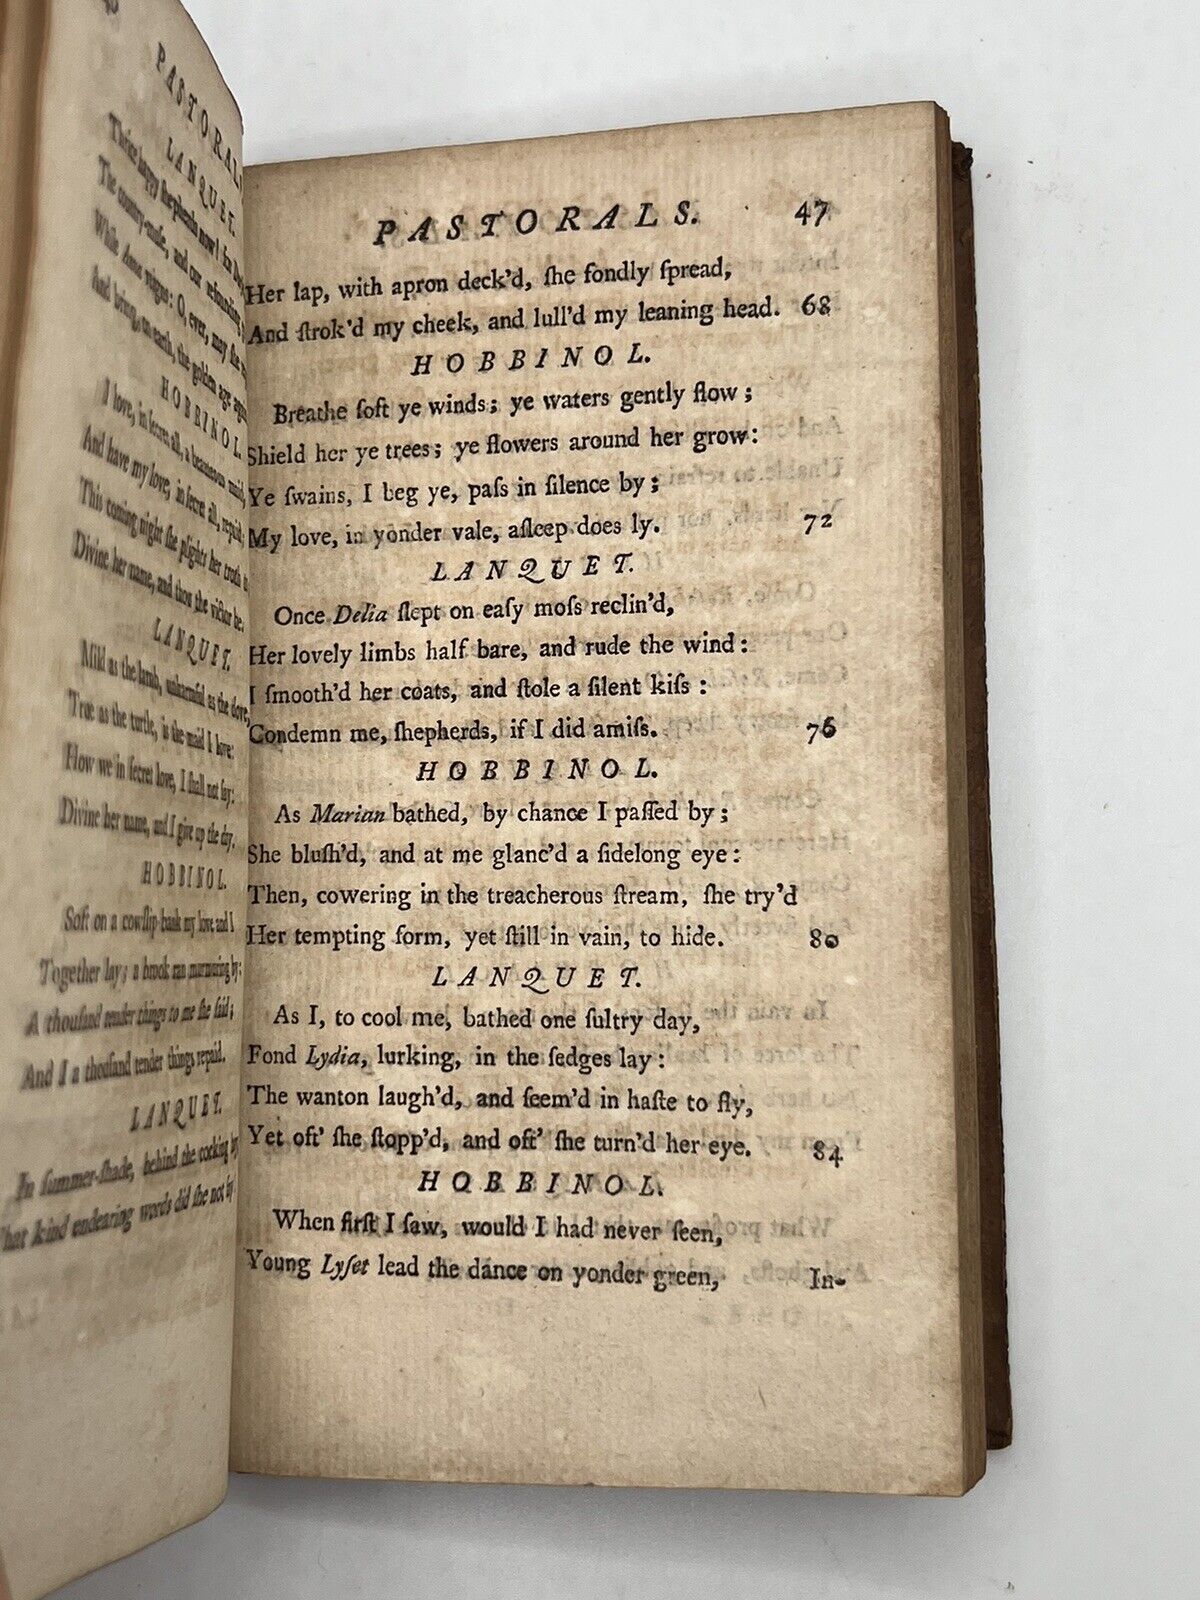 PASTORALS
LANQUET.
Thrice happy shepherds now! for
The country-muse, and our returning
While Anna reigns: O, ever, may she
And bring, on earth, the golden age
HOBBINOL.
I love, in secret all, a beauteous maid,
And have my love, in secret all, repaid;
This coming night she plights her troth to
Divine her name, and thou the victor be.
LANQUET.
Mild as the lamb, unharmful as the dove,
True as the turtle, is the maid I love:
How we in secret love, I shall not say:
Divine her name, and I give up the day.
HOBBINOL.
Soft on a cowslip-bank my love and I
Together lay; a brook ran murmuring by:
A thousand tender things to me she said;
And I a thousand tender things repaid.
LANQUET.
In summer-shade, behind the cocking
What kind endearing words did she not
PASTORALS. 47
Her lap, with apron deck'd, ſhe fondly ſpread,
And ſtrok'd my cheek, and lull'd my leaning head. 68
HOBBINOL.
Breathe ſoft ye winds; ye waters gently flow;
Shield her ye trees; ye flowers around her grow:
Ye ſwains, I beg ye, paſs in ſilence by;
My love, in yonder vale, aſleep does ly. 72
LANQUET.
Once Delia ſlept on eaſy moſs reclin'd,
Her lovely limbs half bare, and rude the wind:
I ſmooth'd her coats, and ſtole a ſilent kiſs:
Condemn me, ſhepherds, if I did amiſs. 76
HOBBINOL.
As Marian bathed, by chance I paſſed by;
She bluſh'd, and at me glanc'd a ſidelong eye:
Then, cowering in the treacherous ſtream, ſhe try'd
Her tempting form, yet ſtill in vain, to hide. 80
LANQUET.
As I, to cool me, bathed one ſultry day,
Fond Lydia, lurking, in the ſedges lay:
The wanton laugh'd, and ſeem'd in haſte to fly,
Yet oft' ſhe ſtopp'd, and oft' ſhe turn'd her eye. 84
HOBBINOL.
When firſt I ſaw, would I had never ſeen,
Young Lyſet lead the dance on yonder green,
In-